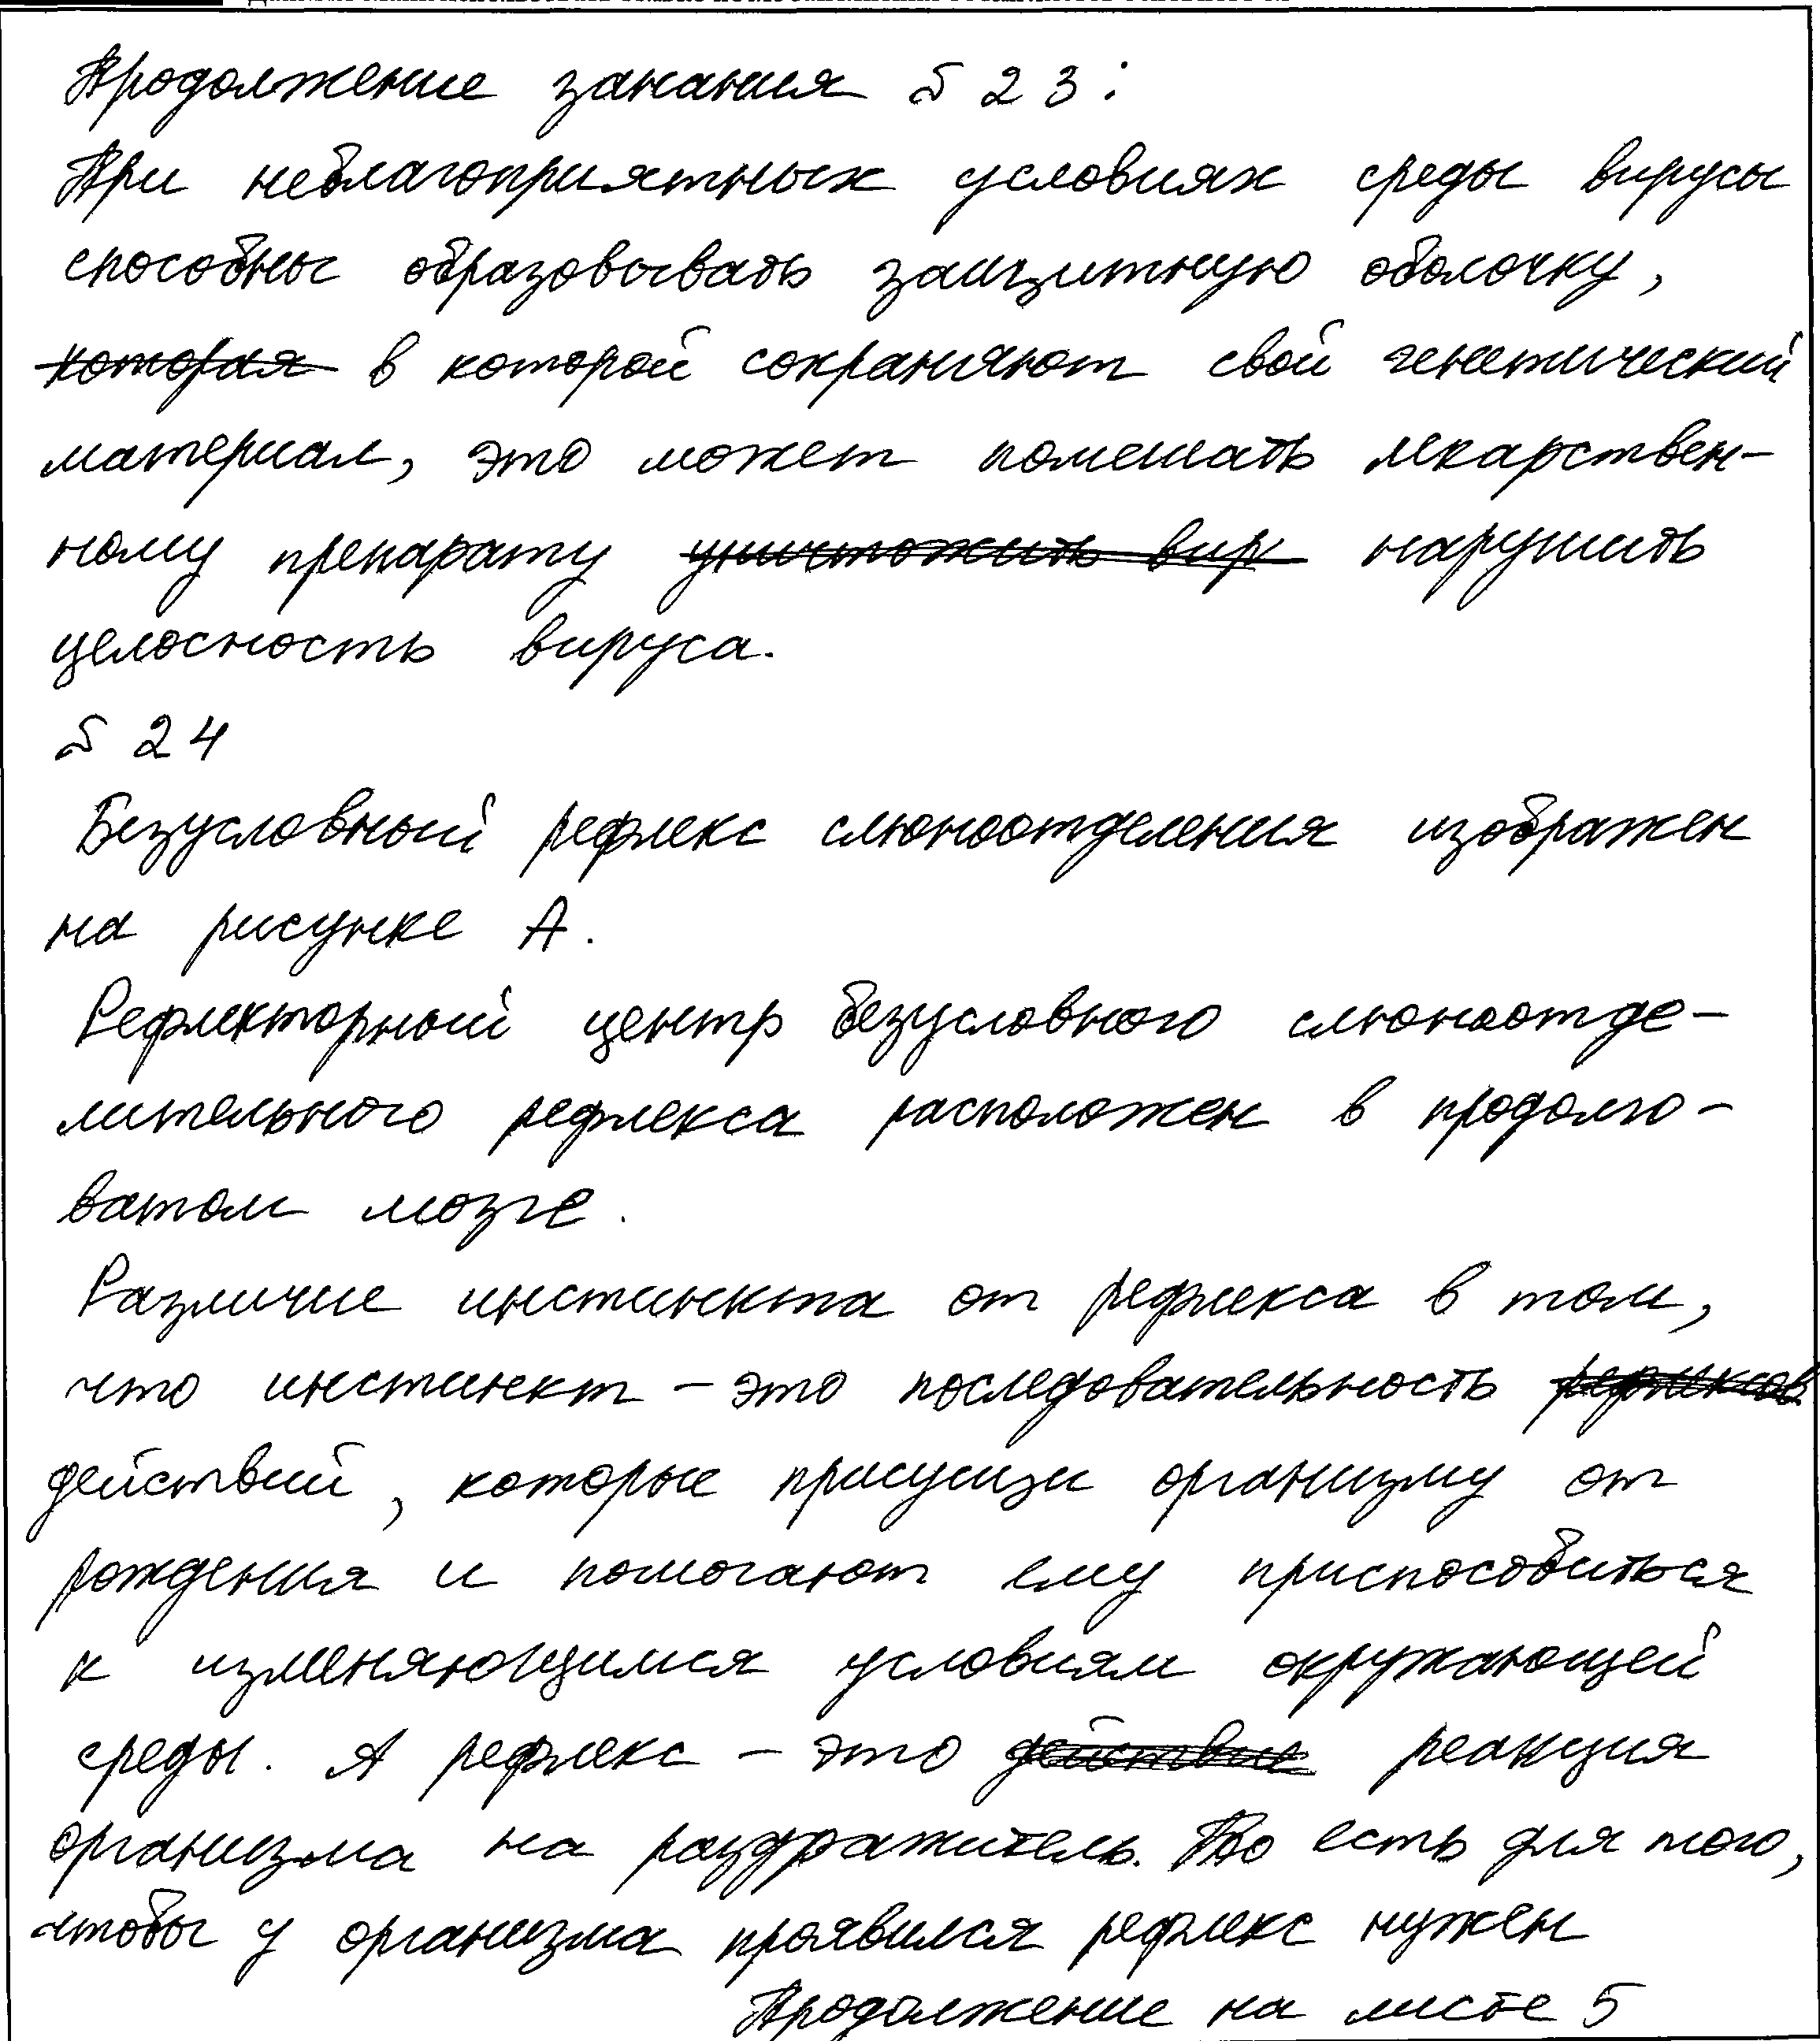 Продолжение занания № 23:
При неблагоприятных условиях среды вирусы
способны образовывать защитную оболочку,
которая в которой сохраняют свой генетический
материал, это может помешать лекарствен-
ному препарату уничтожить вир нарушить
целосность вируса.
№ 24
Безусловный рефлекс слюноотделения изображен
на рисунке А.
Рефлекторный центр безусловного слюноотде-
лительного рефлекса расположен в продолго-
ватом мозге.
Различие инстинкта от рефлекса в том,
что инстинкт - это последовательность рефлексов
действий, которые присущи организму от
рождения и помогают ему приспособиться
к изменяющимся условиям окружающей
среды. А рефлекс - это действие реакция
организма на раздражитель. То есть для того,
чтобы у организма проявился рефлекс нужен
Продолжение на листе 5